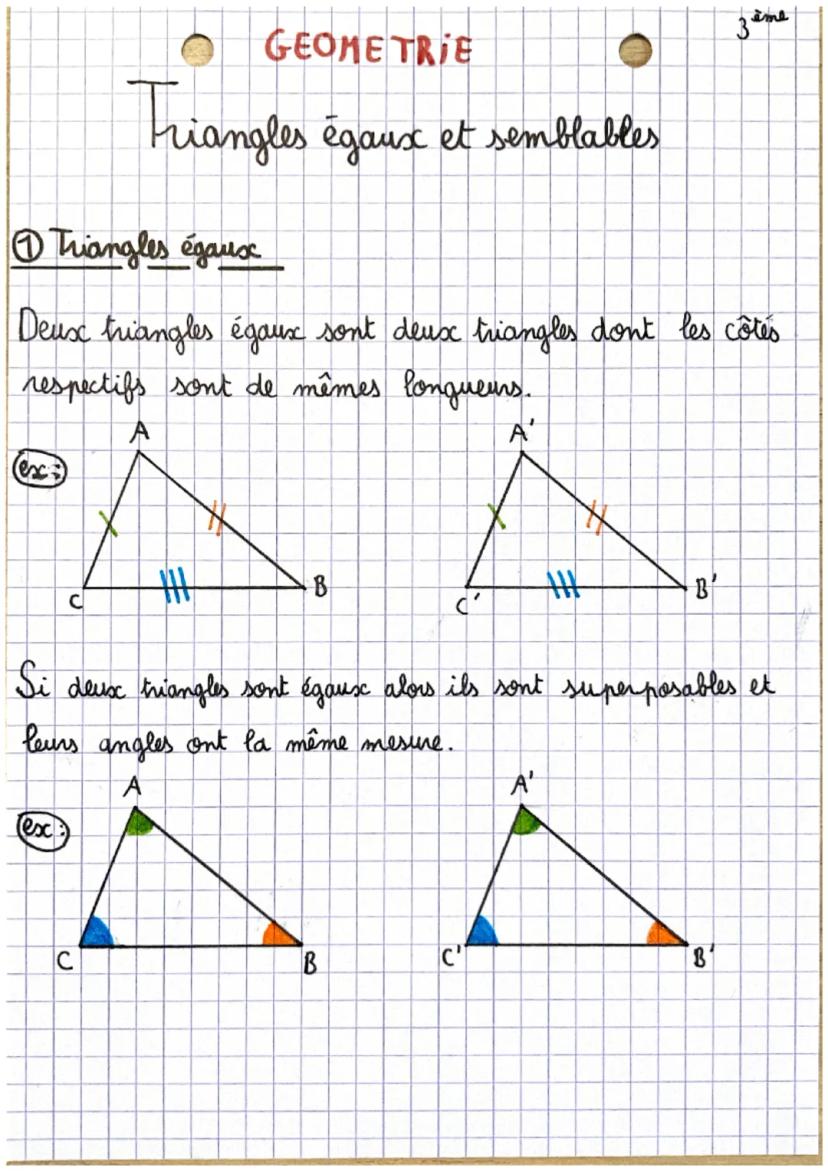 3ème
GEOMETRIE
Triangles égaux et semblables
① Triangles égaux
Deux triangles égaux sont deux triangles dont les côtés
respectifs sont de mêmes longueurs.
ex:
A
C
B
A'
C'
B'
Si deux triangles sont égaux alors ils sont superposables et
leurs angles ont la même mesure.
ex:
A
C
B
A'
C'
B'